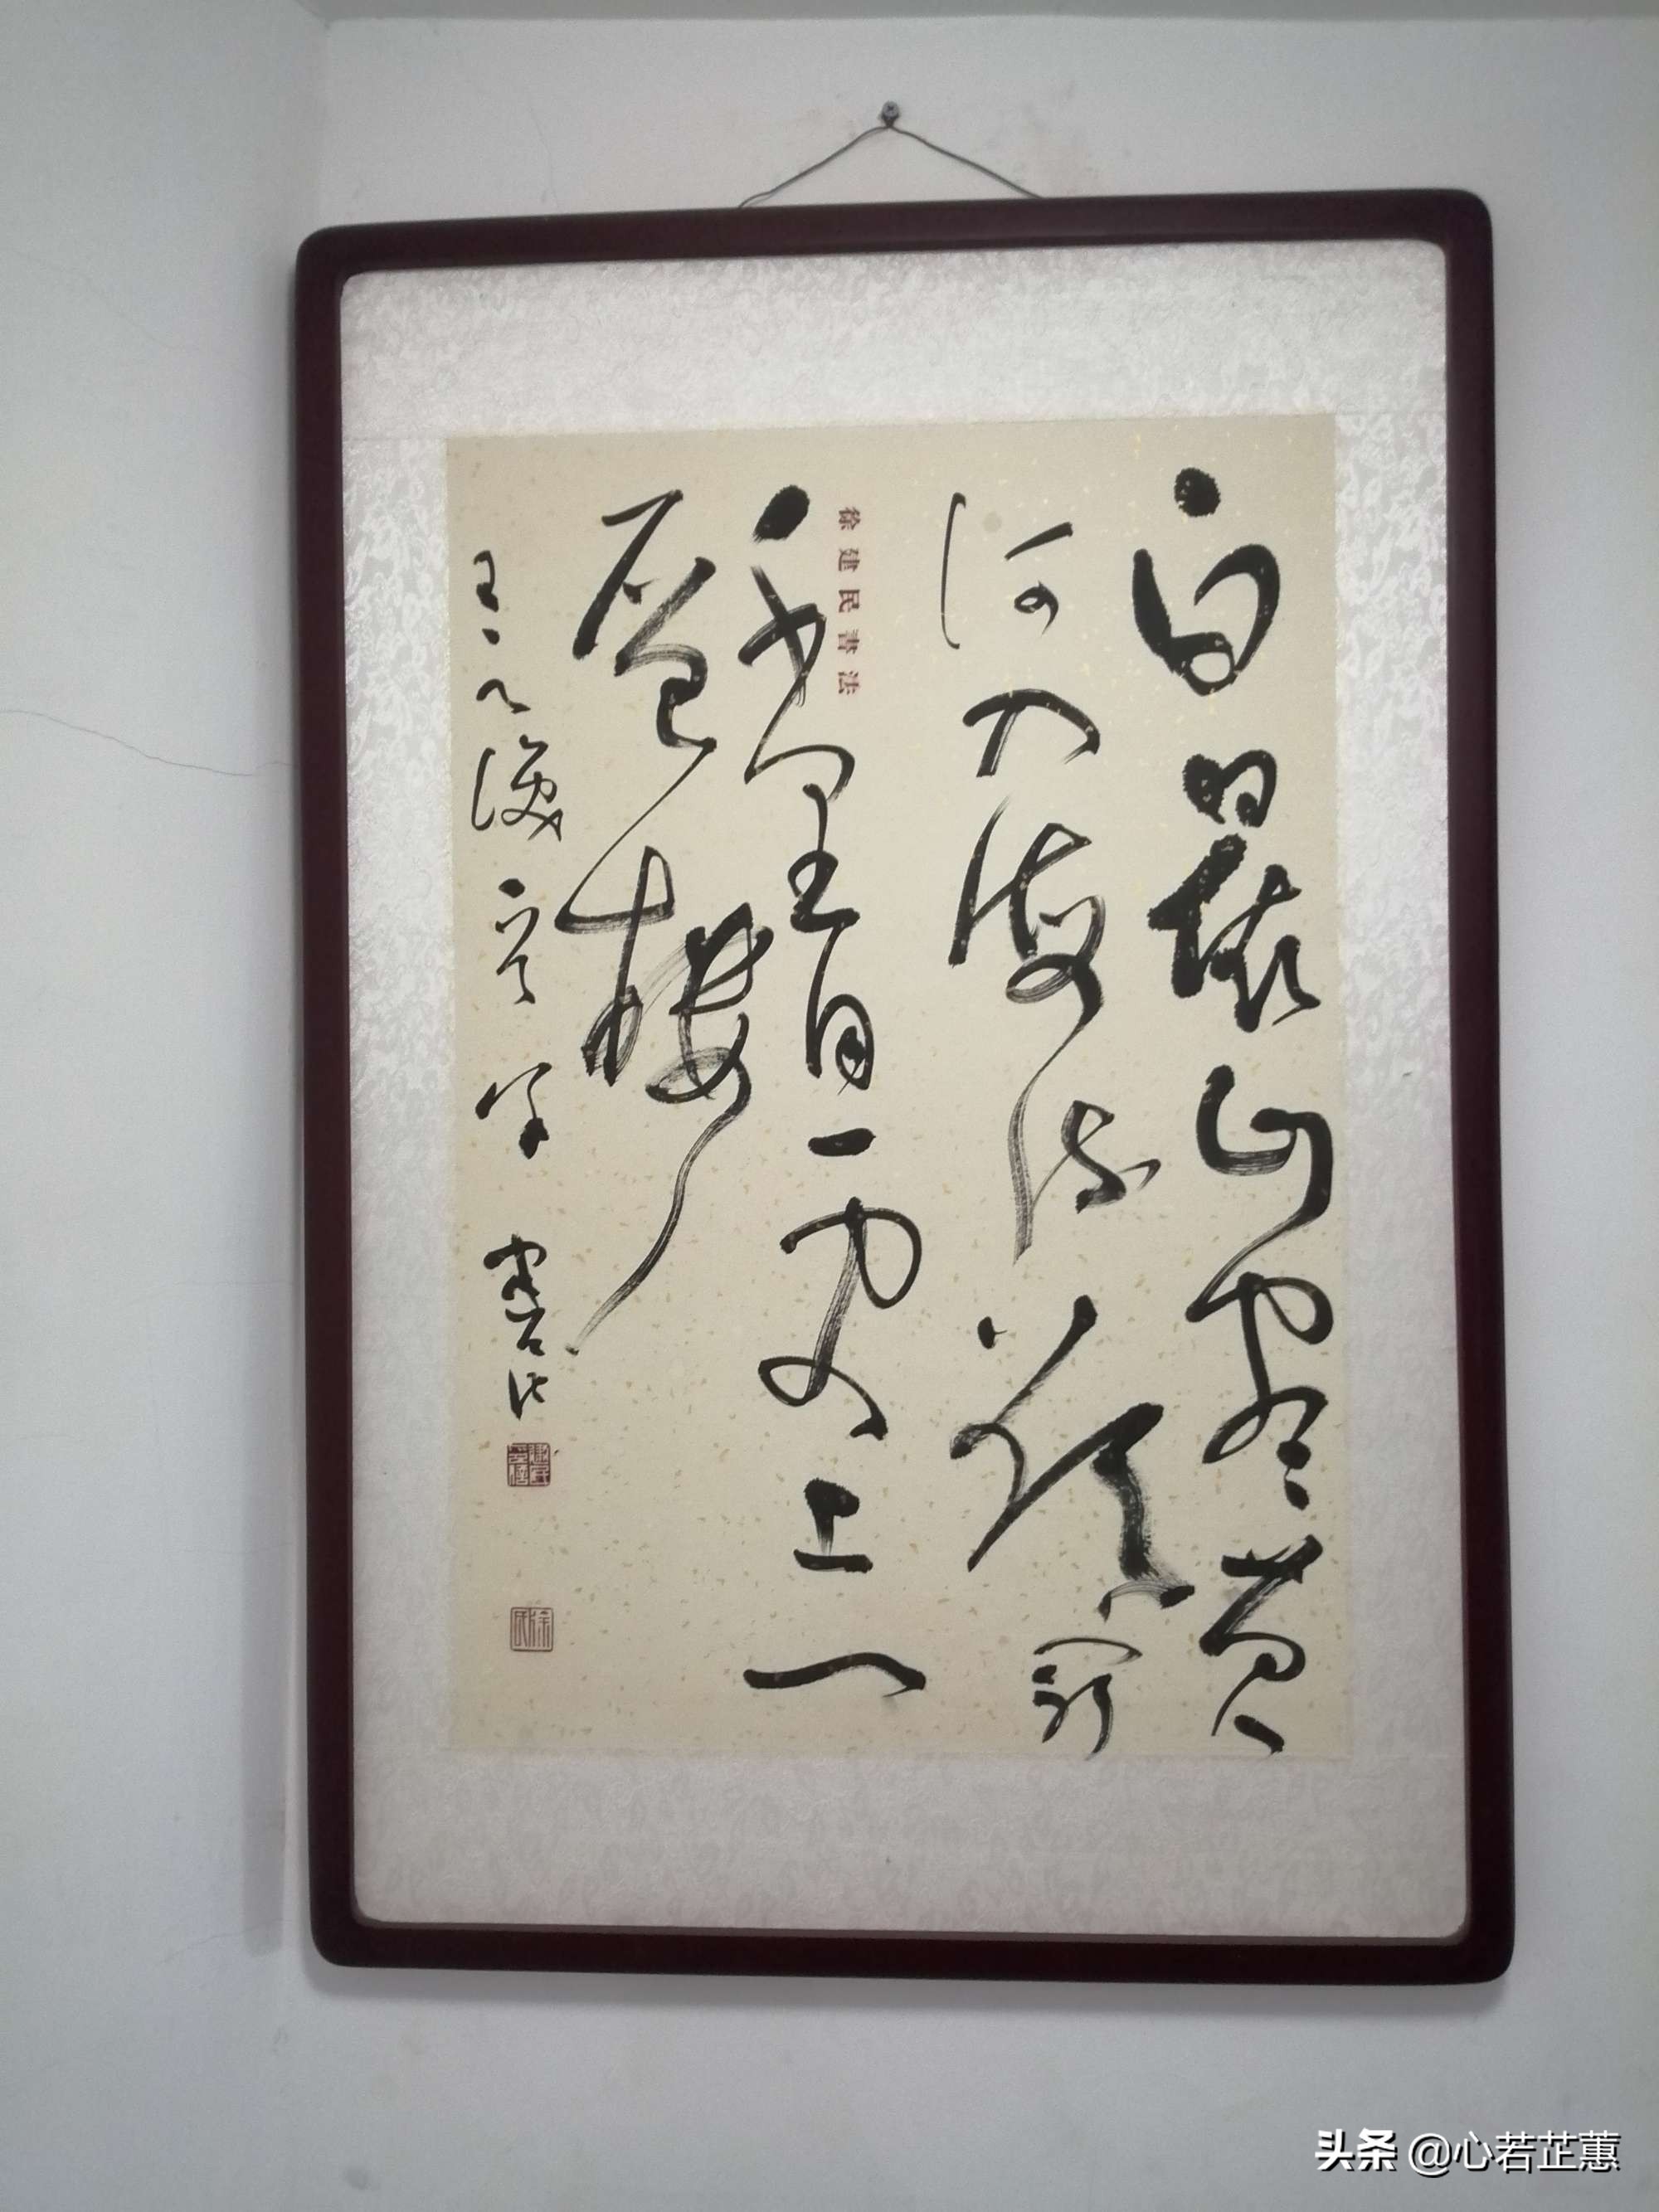 白日依山盡黄
河入海流欲窮
千里目更上一
層樓
徐建民書法
王之渙
头条 @心若芷蕙